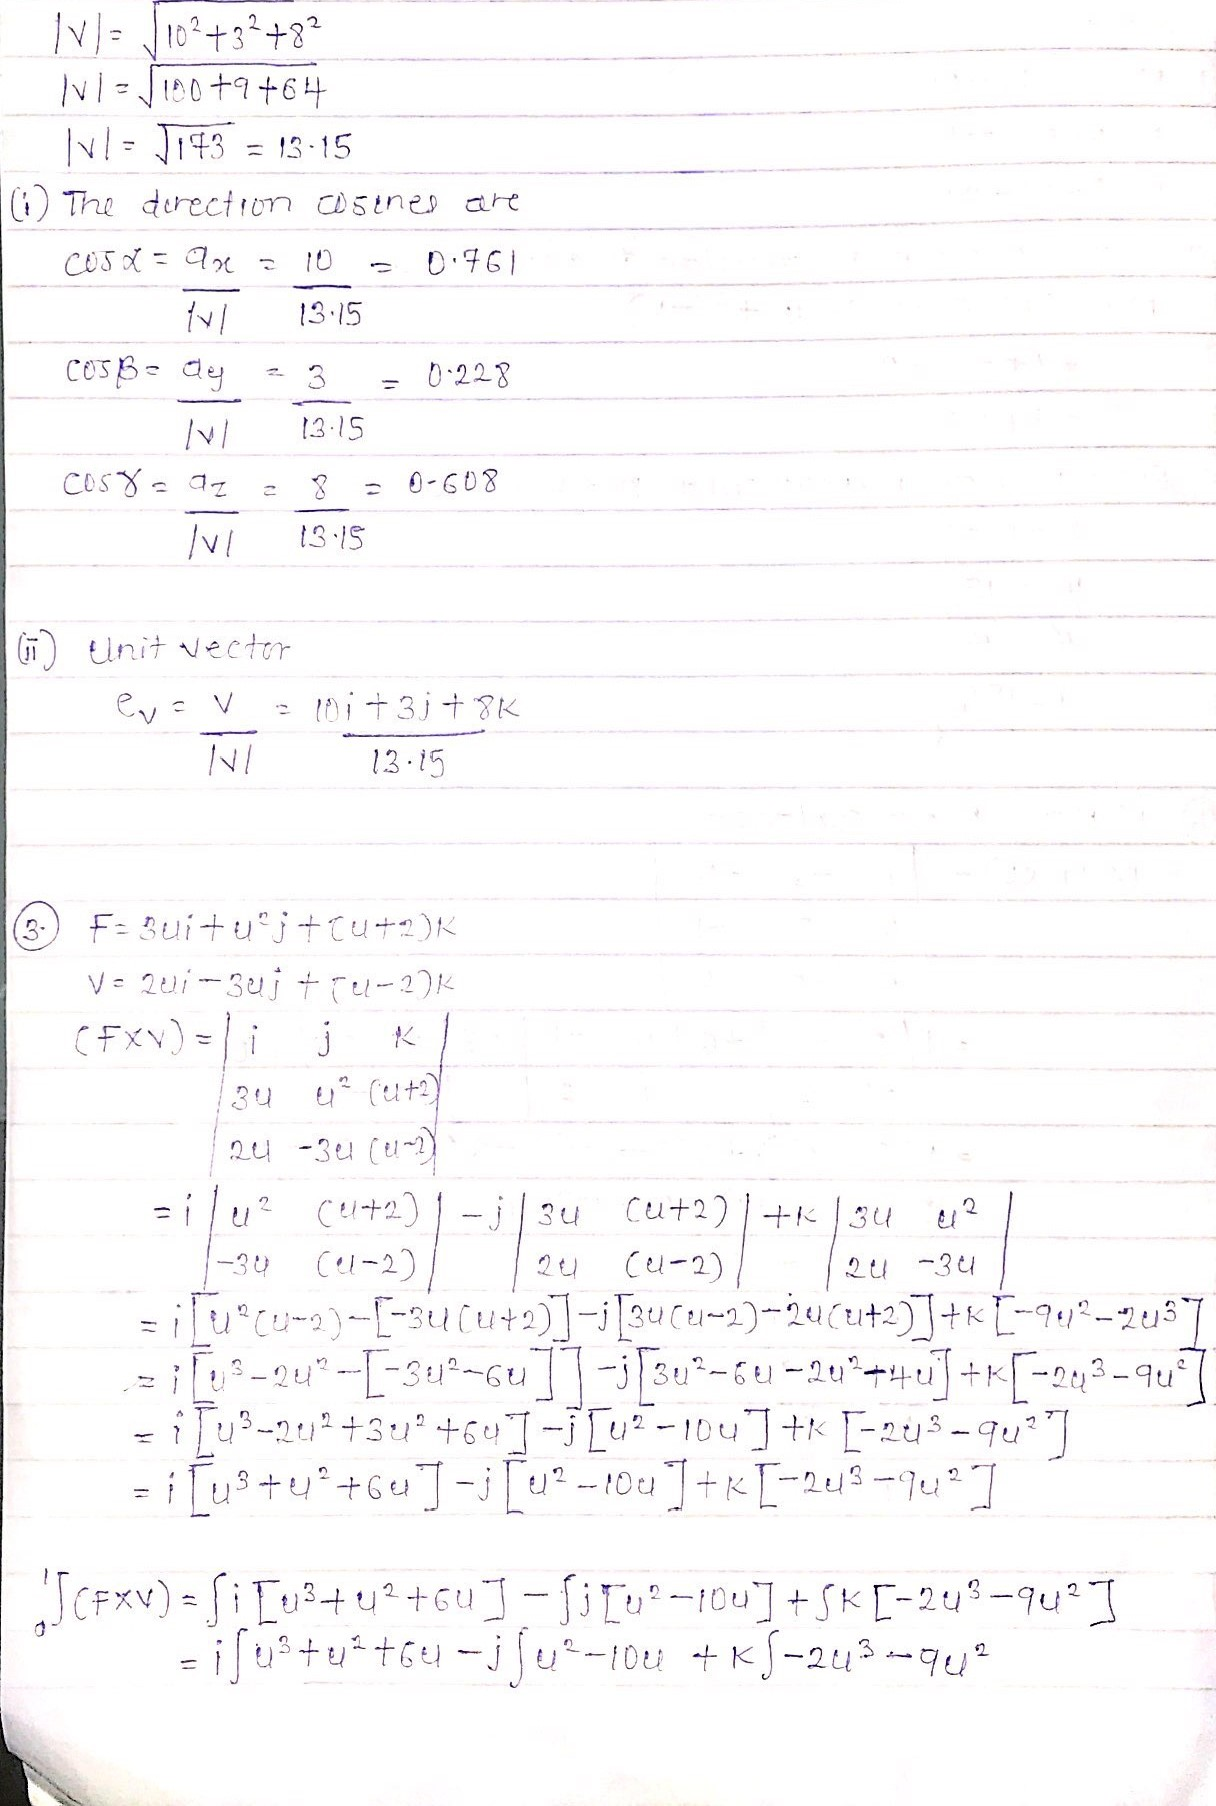 |V| = √10²+3²+8²
|V| = √100+9+64
|V| = √173 = 13.15
(i) The direction cosines are
cosα = ax/|V| = 10/13.15 = 0.761
cosβ = ay/|V| = 3/13.15 = 0.228
cosγ = az/|V| = 8/13.15 = 0.608
(ii) Unit vector
eᵥ = V/|V| = 10i+3j+8k/13.15
3. F = 3ui+u²j+(u+2)k
V = 2ui-3uj+(u-2)k
(F×V) = | i j k |
| 3u u² (u+2) |
| 2u -3u (u-2) |
= i | u² (u+2) | -j | 3u (u+2) | +k | 3u u² |
| -3u (u-2) | | 2u (u-2) | | 2u -3u |
= i[u²(u-2)-[-3u(u+2)]-j[3u(u-2)-2u(u+2)]+k[-9u²-2u³]
= i[u³-2u²-[-3u²-6u]]-j[3u²-6u-2u²+4u]+k[-2u³-9u²]
= i[u³-2u²+3u²+6u]-j[u²-10u]+k[-2u³-9u²]
= i[u³+u²+6u]-j[u²-10u]+k[-2u³-9u²]
₀¹∫(F×V) = ∫i[u³+u²+6u]-∫j[u²-10u]+∫k[-2u³-9u²]
= i∫u³+u²+6u-j∫u²-10u+k∫-2u³-9u²